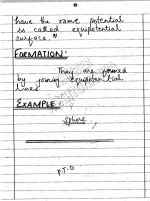 have the same potential
is called equipotential
surface."
FORMATION:
They are formed
by joining equipotential
lines
EXAMPLE:
Sphere
P.T.O